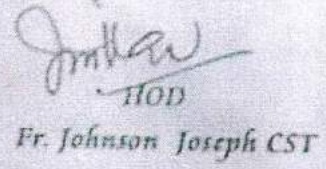 HOD
Fr. Johnson Joseph CST